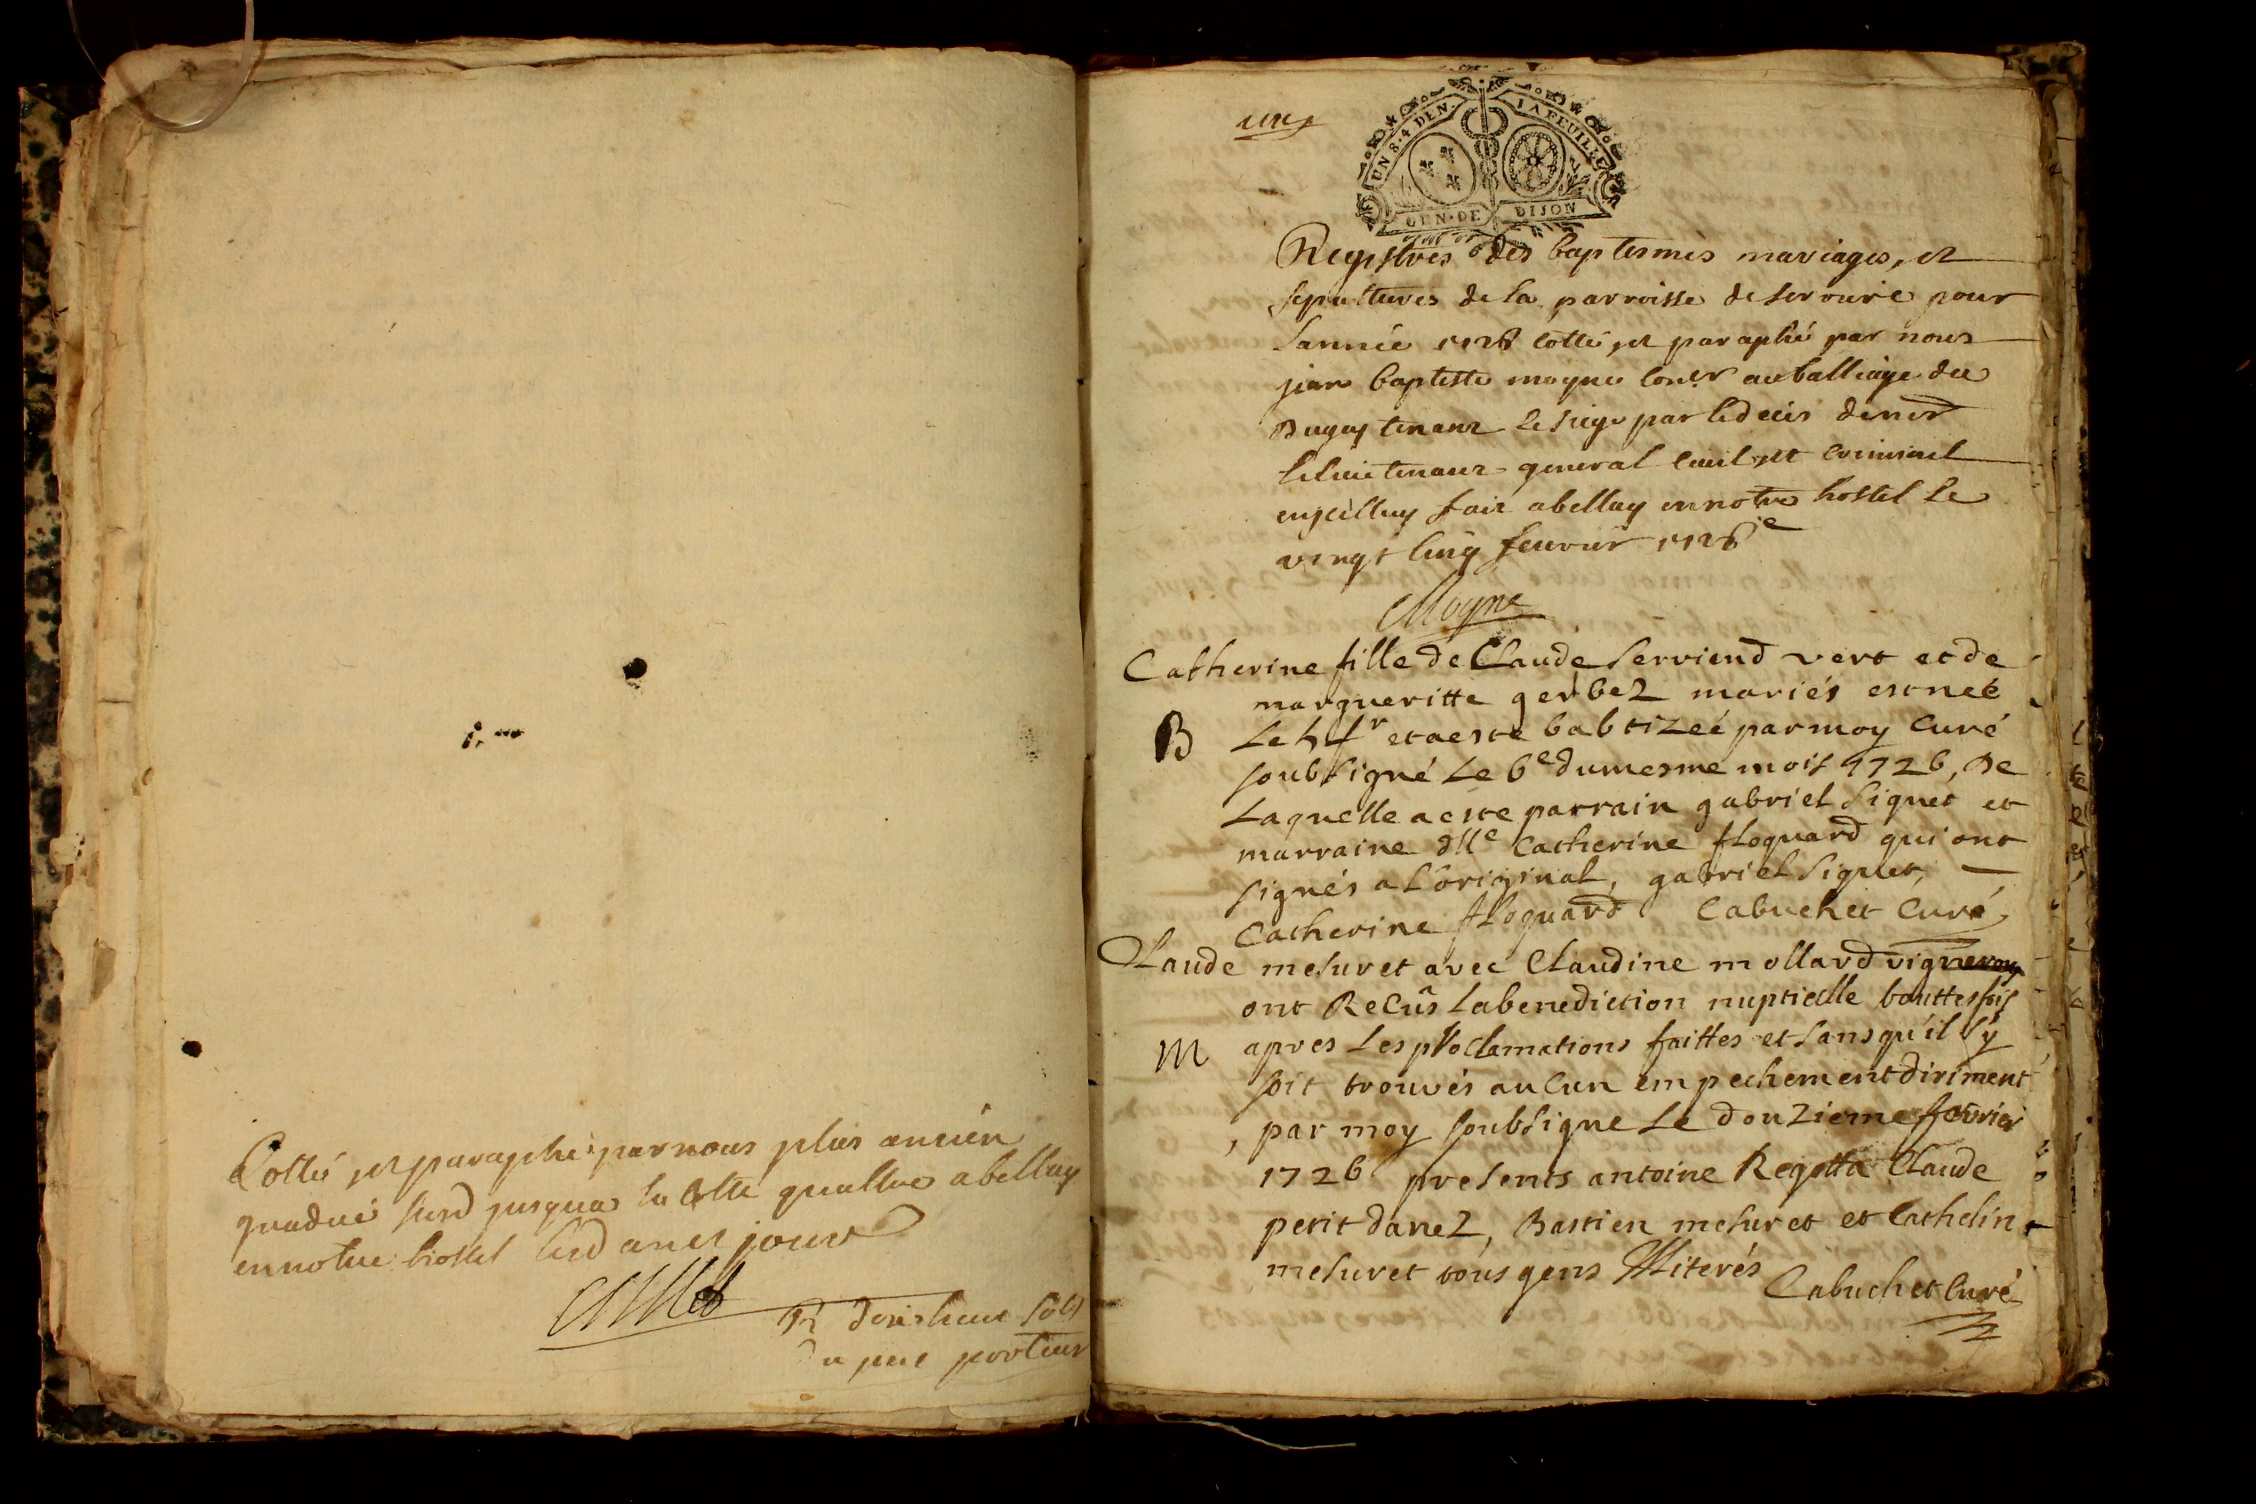 Cotté et paraphé par nous plus ancien
gradué susd jusqua la cotte quattre a bellay
en notre hostel lesd an et jour
du pnt porteur
une
UN S. 4 DEN. LA FEUILLE
GEN. DE DIJON
Registres des baptesmes mariages, et
sepultures de la parroisse de serourie pour
lannée 1726 cotté et paraphé par nous
jean baptiste moyne coner au balliage du
Bugey tenant le siege par le deceis de mr
le lieutenant general civil et criminel
en jcelluy fait a bellay en notre hostel le
vingt cinq feuvrier 1726
Moyne
Catherine fille de Claude Serviend vert et de
margueritte gerbez mariés est neé
B Le 5 fr et a este babtizeé par moy Curé
soubsigné Le 6e du mesme mois 1726, De
Laquelle a este parrain gabriel Signet et
marraine dlle Catherine floquard qui ont
signés a L'original, gabriel Signet,
Catherine floquard Cabuchet Curé
Claude mesuret avec Claudine mollard vigneron
ont Recûs La benediction nuptialle touttesfois
M apres Les proclamations faittes et sans qu'il sy
soit trouvés aucun empechement diriment
, par moy soubsigne Le douzieme fevrier
1726 presents antoine Regotta Claude
petit danez, Bastien mesuret et Cathelin
mesuret tous gens Illiterés
Cabuchet Curé